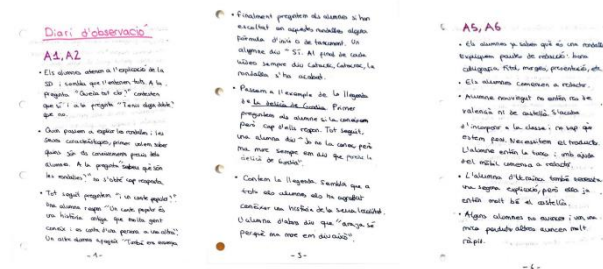 Diari d'observació
A1, A2
• Els alumnes atenen a l'explicació de la
SD i sembla que l'entenen tots. A la
pregunta "Queda tot clar?" contesten
que sí i a la pregunta "Teniu algun dubte?"
que no.
• Quan passem a explicar les rondalles i les
seues característiques, primer volem saber
quins són els coneixements previs dels
alumnes. A la pregunta "sabeu què són
les rondalles?" no s'obté cap resposta.
• Tot seguit preguntem "i un conte popular?"
Una alumna respon "Un conte popular és
una història antiga que molta gent
coneix i es conta d'una persona a una altra".
Un altre alumne afegeix "També ens ensenya
- 1 -
• Finalment preguntem als alumnes si han
escoltat en aquestes rondalles alguna
fórmula d'inici o de tancament. Un
alumne diu "Sí. Al final de cada
vídeo sempre diu Catacric, Catacrac, la
rondalla s'ha acabat.
• Passem a l'exemple de la llegenda
de La delicà de Gandia. Primer
preguntem als alumnes si la coneixen
però cap d'ells respon. Tot seguit,
una alumna diu "Jo no la conec, però
ma mare sempre em diu que pareix la
delicà de Gandia".
• Contem la llegenda. Sembla que a
tots els alumnes els ha agradat
conéixer una història de la seua localitat.
L'alumna d'abans diu que "ara ja sé
perquè ma mare em diu això".
- 3 -
A5, A6
• Els alumnes ja saben què és una rondalla
Expliquem pautes de redacció: bona
cal·ligrafia, títol, marges, presentació, etc.
• Els alumnes comencen a redactar.
• Alumne nouvingut no entén res de
valencià ni de castellà. S'acaba
d'incorporar a la classe i no sap què
estem fent. Necessitem el traductor.
L'alumne entén la tasca i amb ajuda
del mòbil comença a redactar.
• L'alumna d'Ucraïna també necessita
una segona explicació, però ella ja
entén molt bé el castellà.
• Alguns alumnes no avancen i van una
mica perduts, altres avancen molt
ràpid.
- 6 -